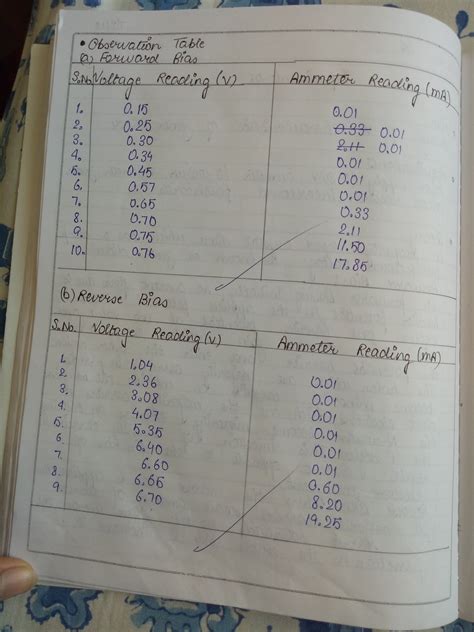 • Observation Table
(a) Forward Bias
S.No. Voltage Reading (V) Ammeter Reading (mA)
1. 0.15 0.01
2. 0.25 0.33 0.01
3. 0.30 2.11 0.01
4. 0.34 0.01
5. 0.45 0.01
6. 0.57 0.01
7. 0.65 0.33
8. 0.70 2.11
9. 0.75 11.50
10. 0.76 17.85
(b) Reverse Bias
S.No. Voltage Reading (V) Ammeter Reading (mA)
1. 1.04 0.01
2. 2.36 0.01
3. 3.08 0.01
4. 4.07 0.01
5. 5.35 0.01
6. 6.40 0.01
7. 6.60 0.60
8. 6.65 8.20
9. 6.70 19.25